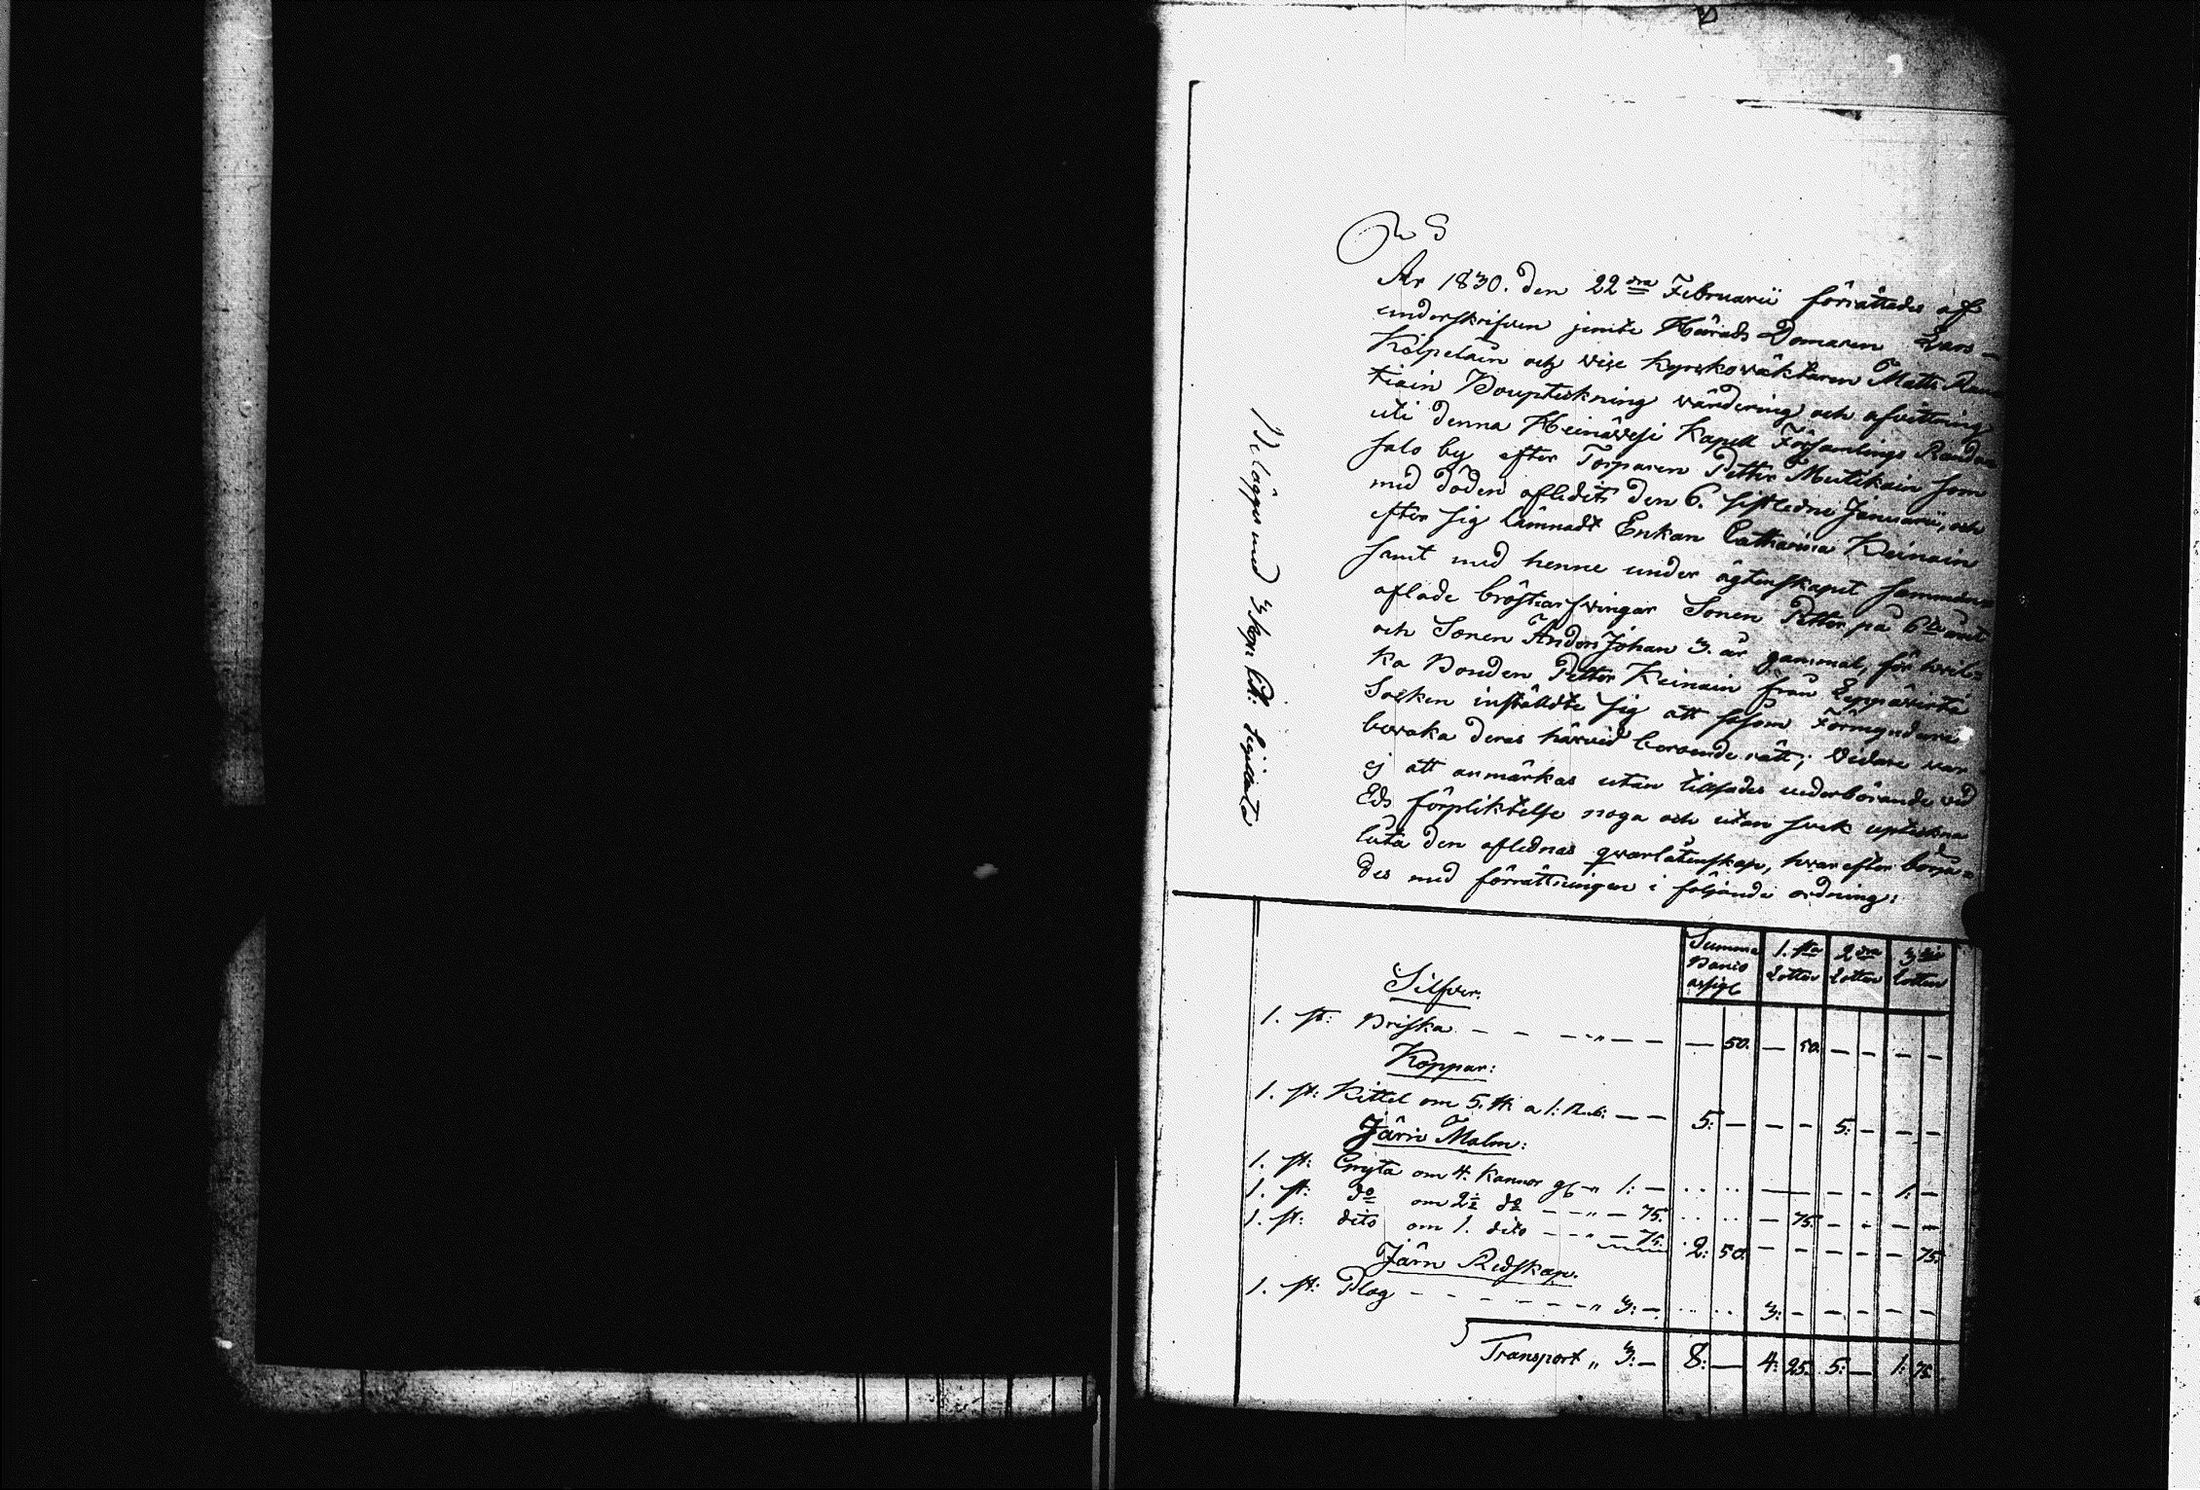 År 1830. den 22dra Februarii förrättades af
underskrifven jemte Härads Domaren Lars
Kolpelain och vise Kyrkoväktaren Matts
tiain Bouptekning värdering och afvittring
uti denna Heinävesi Kapell Församlings Randa
salo by efter Torparen Petter Mutikain som
med döden aflidit den 6. sistledne Januarii, och
efter sig lämnadt Enkan Catharina Keinain
samt med henne under ägtenskapet samman
aflade bröstarfvingar Sonen Petter på 6te året
och Sonen Anders Johan 3. år gammal, för hvil=
ka Bonden Petter Keinain från Leppävirta
Socken instäldte sig att såsom Förmyndare
bevaka deras härvid beroende rätt; Vidare var
ej att anmärkas utan tillsades vederbörande vid
Eds förpliktelse noga och utan svek uptekna
låta den aflednas qvarlåtenskap, hvarefter börja=
des med förrättningen i följande ordning:
Belägges med 3 kop: Ct. Sigillata
Summa Banco assign 1.sta Lotten 2dra Lotten 3die Lotten
Silfver:
1. st: Briska - - - " - - — 50. — 50. — — — —
Koppar:
1. st: Kittel om 5. ℔ a 1: Rub: — — 5: — — — 5: — — —
Järn Malm:
1. st: Gryta om 4. Kannor " 1: — .. .. — — — — 1: —
1. st: do om 2½ do — — " — 75. .. .. — 75. — — — —
1. st: dito om 1. dito — — " — 75. 2: 50. — — — — — 75.
Järn Redskap.
1. st: Plog - - - - - - " 3: — .. .. 3: — — — — —
Transport " 3: — 8: — 4: 25. 5: — 1: 75.